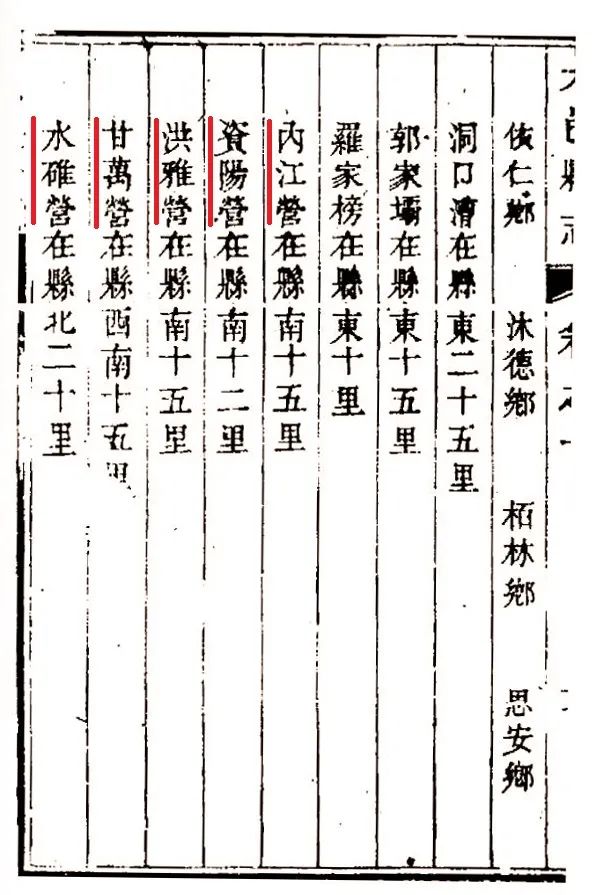 大邑縣志 卷之一
依仁鄉 沐德鄉 栢林鄉 思安鄉
洞口漕在縣東二十五里
郭家壩在縣東十五里
羅家榜在縣東十里
內江營在縣南十五里
資陽營在縣南十二里
洪雅營在縣南十五里
廿萬營在縣西南十五里
水碓營在縣北二十里